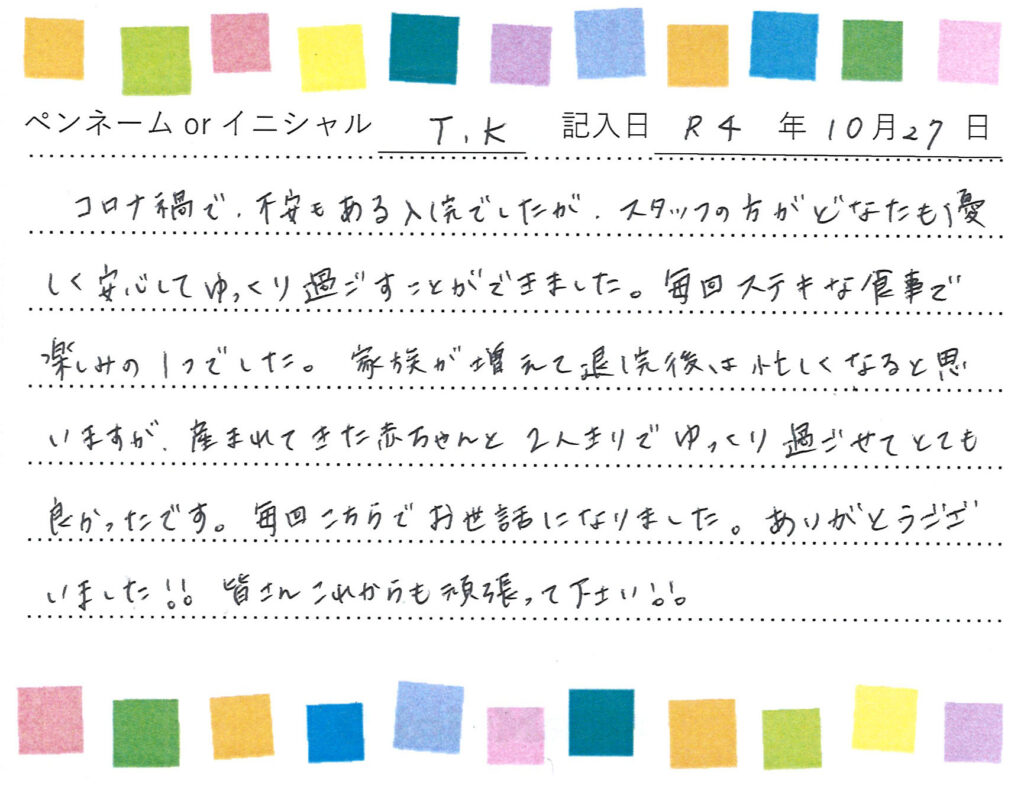 ペンネーム or イニシャル T.K 記入日 R4 年 10月27日
コロナ禍で、不安もある入院でしたが、スタッフの方がどなたも優
しく安心してゆっくり過ごすことができました。毎回ステキな食事で
楽しみの1つでした。家族が増えて退院後は忙しくなると思
いますが、産まれてきた赤ちゃんと2人きりでゆっくり過ごせてとても
良かったです。毎回こちらでお世話になりました。ありがとうござ
いました!! 皆さんこれからも頑張って下さい!!